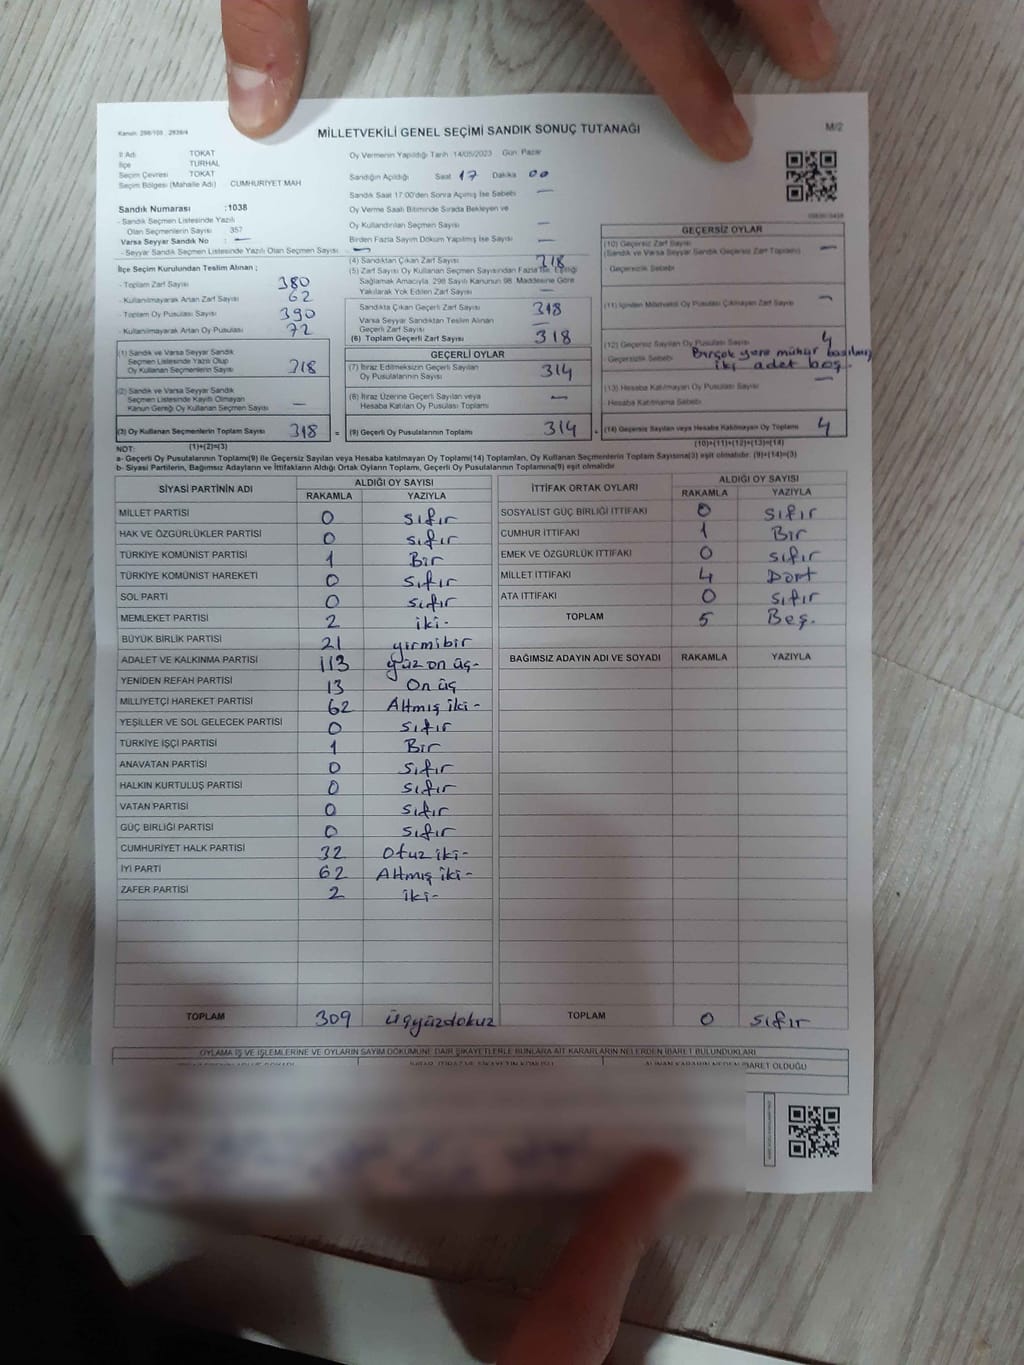 Kanun: 298/105, 2839/4
MİLLETVEKİLİ GENEL SEÇİMİ SANDIK SONUÇ TUTANAĞI
M/2
İl Adı TOKAT
İlçe TURHAL
Seçim Çevresi TOKAT
Seçim Bölgesi (Mahalle Adı) CUMHURİYET MAH
Sandık Numarası :1038
- Sandık Seçmen Listesinde Yazılı
Olan Seçmenlerin Sayısı 357
Varsa Seyyar Sandık No : —
- Seyyar Sandık Seçmen Listesinde Yazılı Olan Seçmen Sayısı —
İlçe Seçim Kurulundan Teslim Alınan ;
- Toplam Zarf Sayısı 380
- Kullanılmayarak Artan Zarf Sayısı 62
- Toplam Oy Pusulası Sayısı 390
- Kullanılmayarak Artan Oy Pusulası 72
(1) Sandık ve Varsa Seyyar Sandık
Seçmen Listesinde Yazılı Olup
Oy Kullanan Seçmenlerin Sayısı 318
(2) Sandık ve Varsa Seyyar Sandık
Seçmen Listesinde Kayıtlı Olmayan
Kanun Gereği Oy Kullanan Seçmen Sayısı —
(3) Oy Kullanan Seçmenlerin Toplam Sayısı 318 =
(1)+(2)=(3)
Oy Vermenin Yapıldığı Tarih 14/05/2023 Gün: Pazar
Sandığın Açıldığı Saat 17 Dakika 00
Sandık Saat 17:00'den Sonra Açılmış İse Sebebi —
Oy Verme Saati Bitiminde Sırada Bekleyen ve
Oy Kullandırılan Seçmen Sayısı —
Birden Fazla Sayım Döküm Yapılmış İse Sayısı —
(4) Sandıktan Çıkan Zarf Sayısı 318
(5) Zarf Sayısı Oy Kullanan Seçmen Sayısından Fazla İse, Eşitliği
Sağlamak Amacıyla, 298 Sayılı Kanunun 98. Maddesine Göre
Yakılarak Yok Edilen Zarf Sayısı —
Sandıkta Çıkan Geçerli Zarf Sayısı 318
Varsa Seyyar Sandıktan Teslim Alınan
Geçerli Zarf Sayısı —
(6) Toplam Geçerli Zarf Sayısı 318
GEÇERLİ OYLAR
(7) İtiraz Edilmeksizin Geçerli Sayılan
Oy Pusulalarının Sayısı 314
(8) İtiraz Üzerine Geçerli Sayılan veya
Hesaba Katılan Oy Pusulası Toplamı —
(9) Geçerli Oy Pusulalarının Toplamı 314
GEÇERSİZ OYLAR
(10) Geçersiz Zarf Sayısı
(Sandık ve Varsa Seyyar Sandık Geçersiz Zarf Toplamı) —
- Geçersizlik Sebebi
(11) İçinden Milletvekili Oy Pusulası Çıkmayan Zarf Sayısı —
(12) Geçersiz Sayılan Oy Pusulası Sayısı 4
Geçersizlik Sebebi Birçok yere mühür basılmış
iki adet boş.
(13) Hesaba Katılmayan Oy Pusulası Sayısı —
Hesaba Katılmama Sebebi
(14) Geçersiz Sayılan veya Hesaba Katılmayan Oy Toplamı 4
(10)+(11)+(12)+(13)=(14)
NOT:
a- Geçerli Oy Pusulalarının Toplamı(9) ile Geçersiz Sayılan veya Hesaba katılmayan Oy Toplamı(14) Toplamları, Oy Kullanan Seçmenlerin Toplam Sayısına(3) eşit olmalıdır. (9)+(14)=(3)
b- Siyasi Partilerin, Bağımsız Adayların ve İttifakların Aldığı Ortak Oyların Toplamı, Geçerli Oy Pusulalarının Toplamına(9) eşit olmalıdır
SİYASİ PARTİNİN ADI ALDIĞI OY SAYISI
RAKAMLA YAZIYLA
MİLLET PARTİSİ 0 sıfır
HAK VE ÖZGÜRLÜKLER PARTİSİ 0 sıfır
TÜRKİYE KOMÜNİST PARTİSİ 1 Bir
TÜRKİYE KOMÜNİST HAREKETİ 0 sıfır
SOL PARTİ 0 sıfır
MEMLEKET PARTİSİ 2 iki-
BÜYÜK BİRLİK PARTİSİ 21 yirmibir
ADALET VE KALKINMA PARTİSİ 113 yüz on üç-
YENİDEN REFAH PARTİSİ 13 On üç
MİLLİYETÇİ HAREKET PARTİSİ 62 Altmış iki-
YEŞİLLER VE SOL GELECEK PARTİSİ 0 sıfır
TÜRKİYE İŞÇİ PARTİSİ 1 Bir
ANAVATAN PARTİSİ 0 sıfır
HALKIN KURTULUŞ PARTİSİ 0 sıfır
VATAN PARTİSİ 0 sıfır
GÜÇ BİRLİĞİ PARTİSİ 0 sıfır
CUMHURİYET HALK PARTİSİ 32 Otuz iki-
İYİ PARTİ 62 Altmış iki-
ZAFER PARTİSİ 2 iki-
TOPLAM 309 üçyüzdokuz
İTTİFAK ORTAK OYLARI ALDIĞI OY SAYISI
RAKAMLA YAZIYLA
SOSYALİST GÜÇ BİRLİĞİ İTTİFAKI 0 sıfır
CUMHUR İTTİFAKI 1 Bir
EMEK VE ÖZGÜRLÜK İTTİFAKI 0 sıfır
MİLLET İTTİFAKI 4 Dört
ATA İTTİFAKI 0 sıfır
TOPLAM 5 Beş.
BAĞIMSIZ ADAYIN ADI VE SOYADI RAKAMLA YAZIYLA
TOPLAM 0 sıfır
OYLAMA İŞ VE İŞLEMLERİNE VE OYLARIN SAYIM DÖKÜMÜNE DAİR ŞİKAYETLERLE BUNLARA AİT KARARLARIN NELERDEN İBARET BULUNDUKLARI
ALINAN KARARIN NEDEN İBARET OLDUĞU